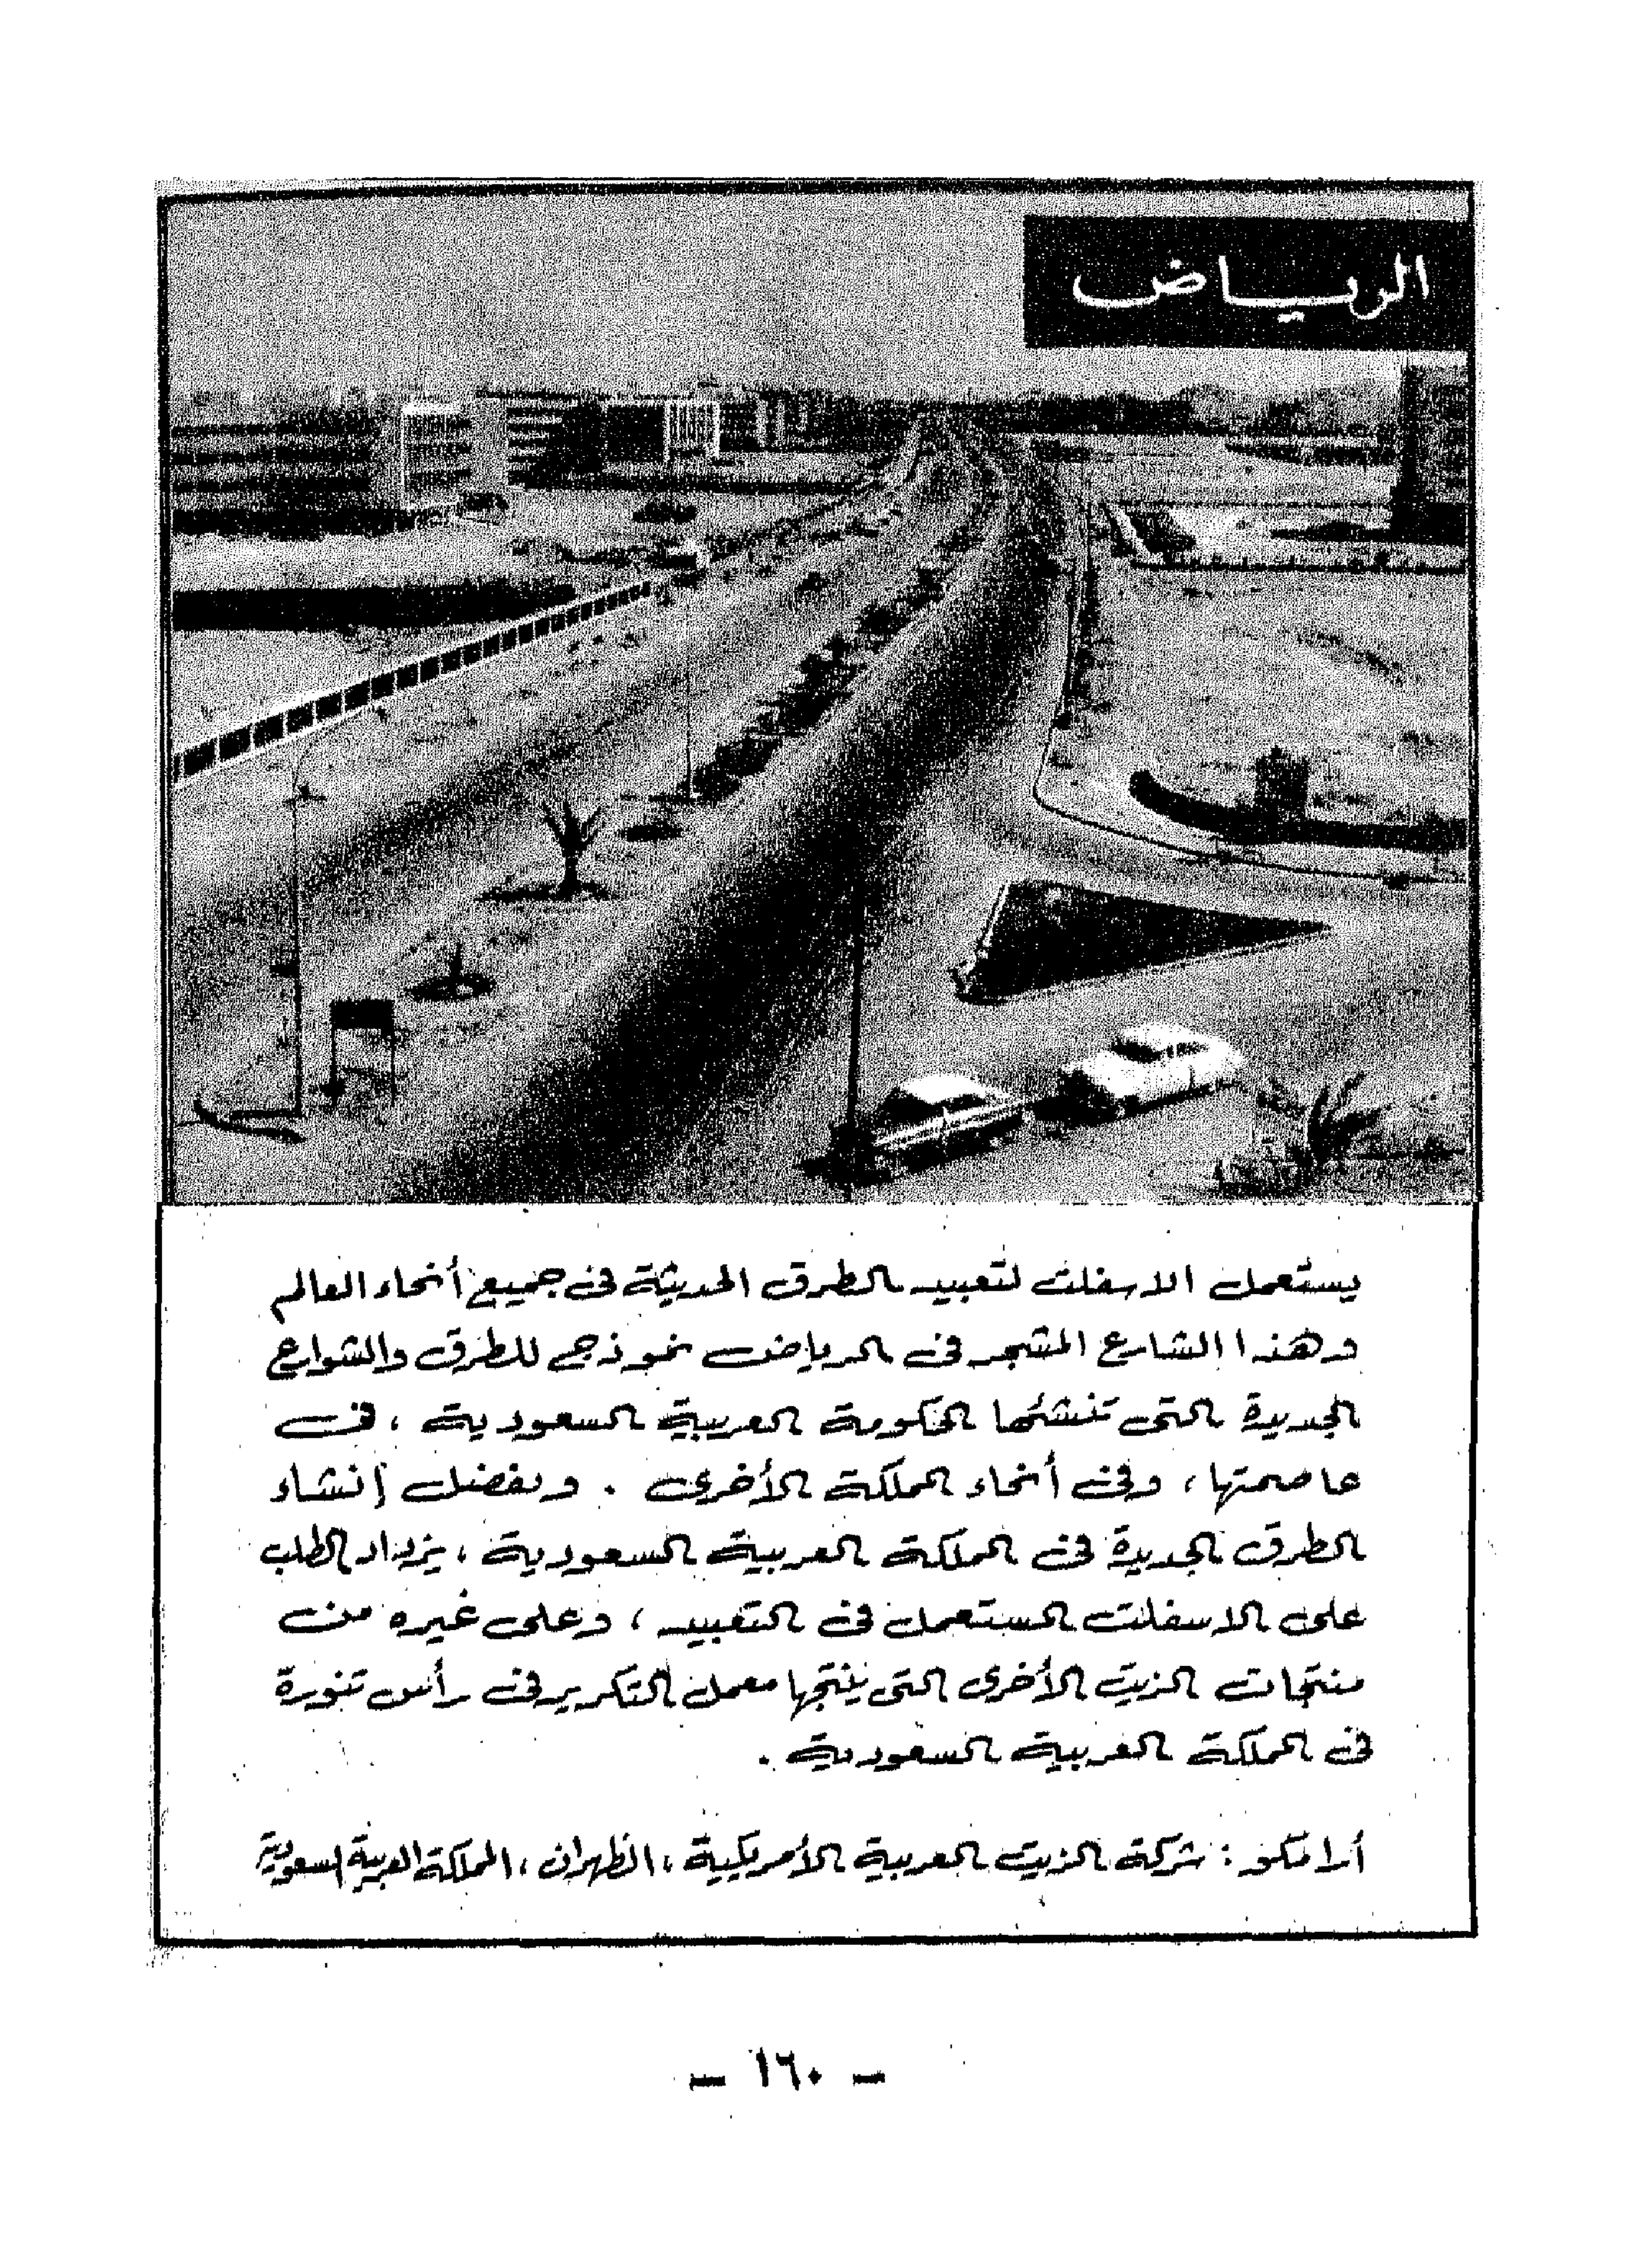 الرياض
يستعمل الاسفلت لتعبيد الطرق الحديثة في جميع أنحاء العالم
وهذا الشارع المشجر في الرياض نموذج للطرق والشوارع
الجديدة التى تنشئها الحكومة العربية السعودية ، فى
عاصمتها ، وفى أنحاء المملكة الأخرى . وبفضل إنشاء
الطرق الجديدة فى المملكة العربية السعودية ، يزداد الطلب
على الاسفلت المستعمل فى التعبيد ، وعلى غيره من
منتجات الزيت الأخرى التى ينتجها معمل التكرير فى رأس تنورة
فى المملكة العربية السعودية .
أرامكو : شركة الزيت العربية الأمريكية ، الظهران ، المملكة العربية السعودية
— ١٦٠ —